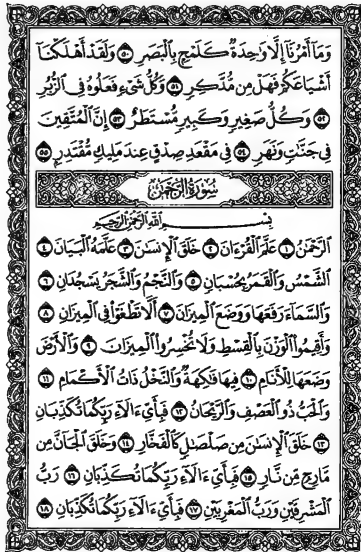 وَمَا أَمْرُنَا إِلَّا وَاحِدَةٌ كَلَمْحٍ بِالْبَصَرِ ٥٠ وَلَقَدْ أَهْلَكْنَا
أَشْيَاعَكُمْ فَهَلْ مِن مُّدَّكِرٍ ٥١ وَكُلُّ شَىْءٍ فَعَلُوهُ فِى الزُّبُرِ
٥٢ وَكُلُّ صَغِيرٍ وَكَبِيرٍ مُّسْتَطَرٌ ٥٣ إِنَّ الْمُتَّقِينَ
فِى جَنَّٰتٍ وَنَهَرٍ ٥٤ فِى مَقْعَدِ صِدْقٍ عِندَ مَلِيكٍ مُّقْتَدِرٍ ٥٥
سُورَةُ الرَّحْمَٰنِ
بِسْمِ اللَّهِ الرَّحْمَٰنِ الرَّحِيمِ
الرَّحْمَٰنُ ١ عَلَّمَ الْقُرْءَانَ ٢ خَلَقَ الْإِنسَٰنَ ٣ عَلَّمَهُ الْبَيَانَ ٤
الشَّمْسُ وَالْقَمَرُ بِحُسْبَانٍ ٥ وَالنَّجْمُ وَالشَّجَرُ يَسْجُدَانِ ٦
وَالسَّمَاءَ رَفَعَهَا وَوَضَعَ الْمِيزَانَ ٧ أَلَّا تَطْغَوْا فِى الْمِيزَانِ ٨
وَأَقِيمُوا الْوَزْنَ بِالْقِسْطِ وَلَا تُخْسِرُوا الْمِيزَانَ ٩ وَالْأَرْضَ
وَضَعَهَا لِلْأَنَامِ ١٠ فِيهَا فَٰكِهَةٌ وَالنَّخْلُ ذَاتُ الْأَكْمَامِ ١١
وَالْحَبُّ ذُو الْعَصْفِ وَالرَّيْحَانُ ١٢ فَبِأَىِّ ءَالَاءِ رَبِّكُمَا تُكَذِّبَانِ
١٣ خَلَقَ الْإِنسَٰنَ مِن صَلْصَٰلٍ كَالْفَخَّارِ ١٤ وَخَلَقَ الْجَانَّ مِن
مَّارِجٍ مِّن نَّارٍ ١٥ فَبِأَىِّ ءَالَاءِ رَبِّكُمَا تُكَذِّبَانِ ١٦ رَبُّ
الْمَشْرِقَيْنِ وَرَبُّ الْمَغْرِبَيْنِ ١٧ فَبِأَىِّ ءَالَاءِ رَبِّكُمَا تُكَذِّبَانِ ١٨